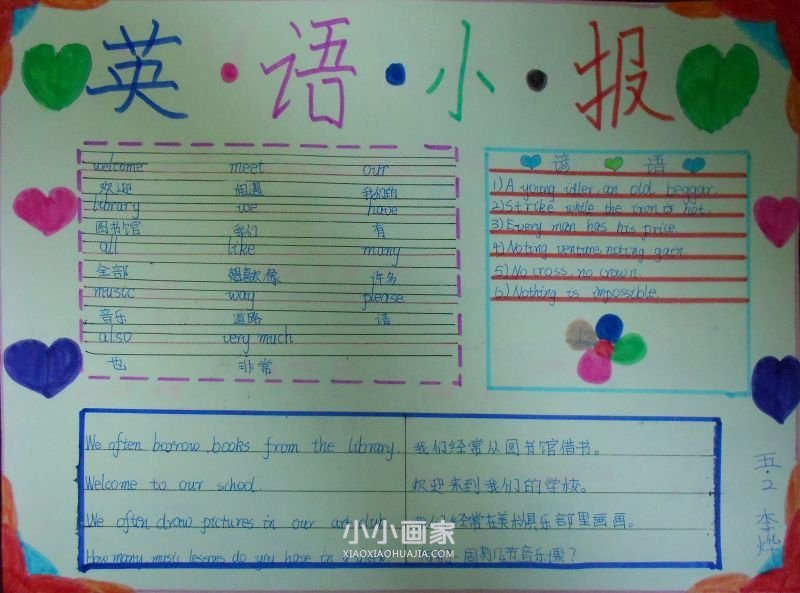 英·语·小·报
welcome meet our
欢迎 相遇 我们的
library we have
图书馆 我们 有
all like many
全部 像 许多
music way please
音乐 道路 请
also very much
也 非常
谚语
1) A young idler, an old beggar.
2) Strike while the iron is hot.
3) Every man has his price.
4) Noting venture, noting gain
5) No cross, no crown.
6) Nothing is impossible.
We often borrow books from the library. 我们经常从图书馆借书。
Welcome to our school. 欢迎来到我们的学校。
We often draw pictures in our art club 我们经常在美术俱乐部里画画。
How many music lessons do you have in a week 一周有几节音乐课?
五·2 李烨
小小画家
XIAOXIAOHUAJIA.COM